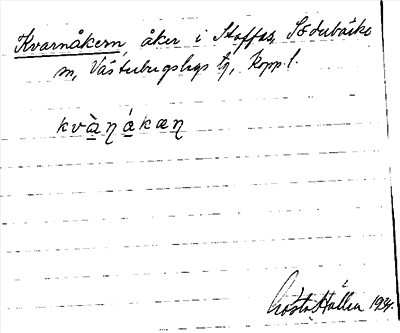 Kvarnåkern, åker i Staffas, Söderbärke
sn, Västerbergslags tg, Kopp. l.
kvàɳákæɳ
Gösta Hallén 1934.